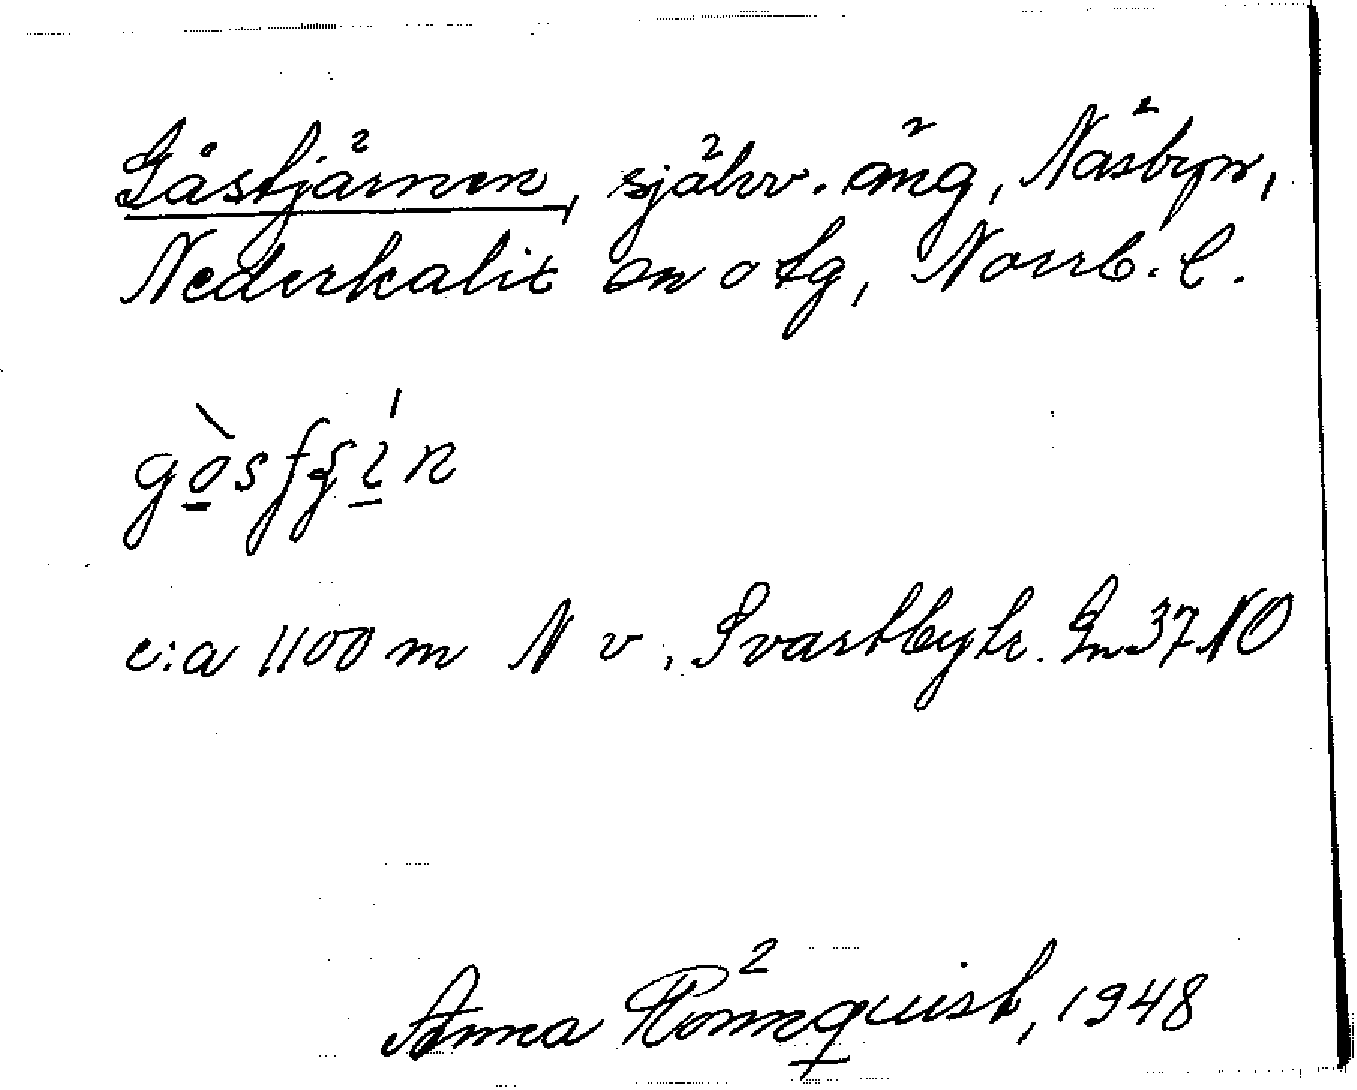 Gåstjärnen, självv. äng, Näsbyn,
Nederkalix sn o tg, Norrb. l.
gòsfʃín
c:a 1100 m N v. Svartbyk. Gn 37 NO
Anna Rönnquist, 1948